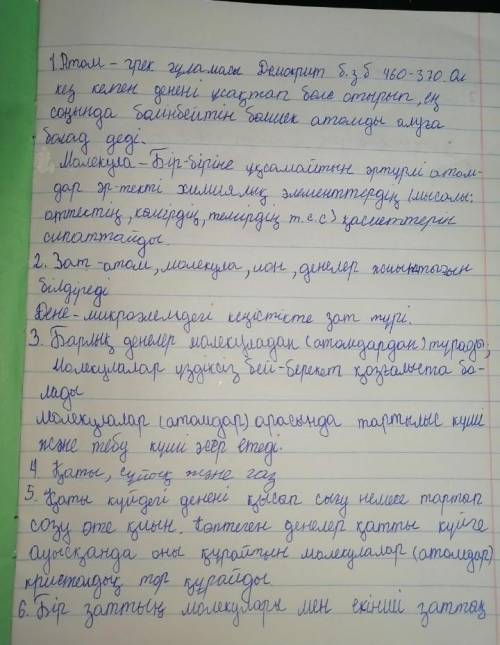 1. Атом - грек ғұламасы Демокрит б.з.б 460-370. Ол
кез келген денені ұсақтап бөле отырып, ең
соңында бөлінбейтін бөлшек атомды алуға
болад деді.
Молекула - Бір-біріне ұқсамайтын әртүрлі атом-
дар әр-текті химиялық элементтердің (мысалы:
оттектің, көмірдің, темірдің т.с.с) қасиеттерін
сипаттайды.
2. Зат - атом, молекула, ион, денелер жиынтығын
білдіреді
Дене - микроәлемдегі кеңістікте зат түрі.
3. Барлық денелер молекуладан (атомдардан) тұрады;
Молекулалар үздіксіз бей-берекет қозғалыста бо-
лады
молекулалар (атомдар) арасында тартылыс күші
және тебу күші әсер етеді.
4. Қатты, сұйық және газ
5. Қатты күйдегі денені қысып сығу немесе тартып
созу өте қиын. Көптеген денелер қатты күйге
ауысқанда оны құрайтын молекулалар (атомдар)
кристалдық тор құрайды
6. Бір заттың молекулары мен екінші заттың